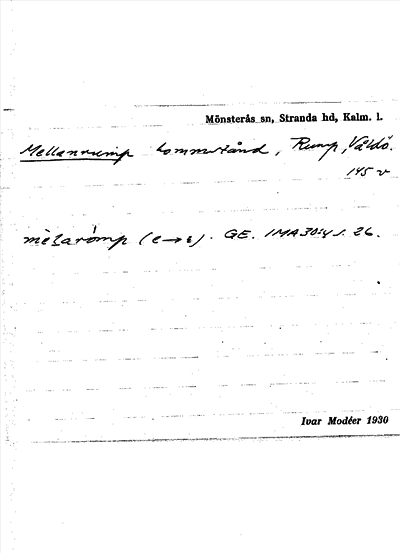 Mönsterås sn, Stranda hd, Kalm. l.
Mellanrump Rump, Våldö.
145 v
(e→ɛ). GE. IMA 30:4 s. 26.
Ivar Modéer 1930